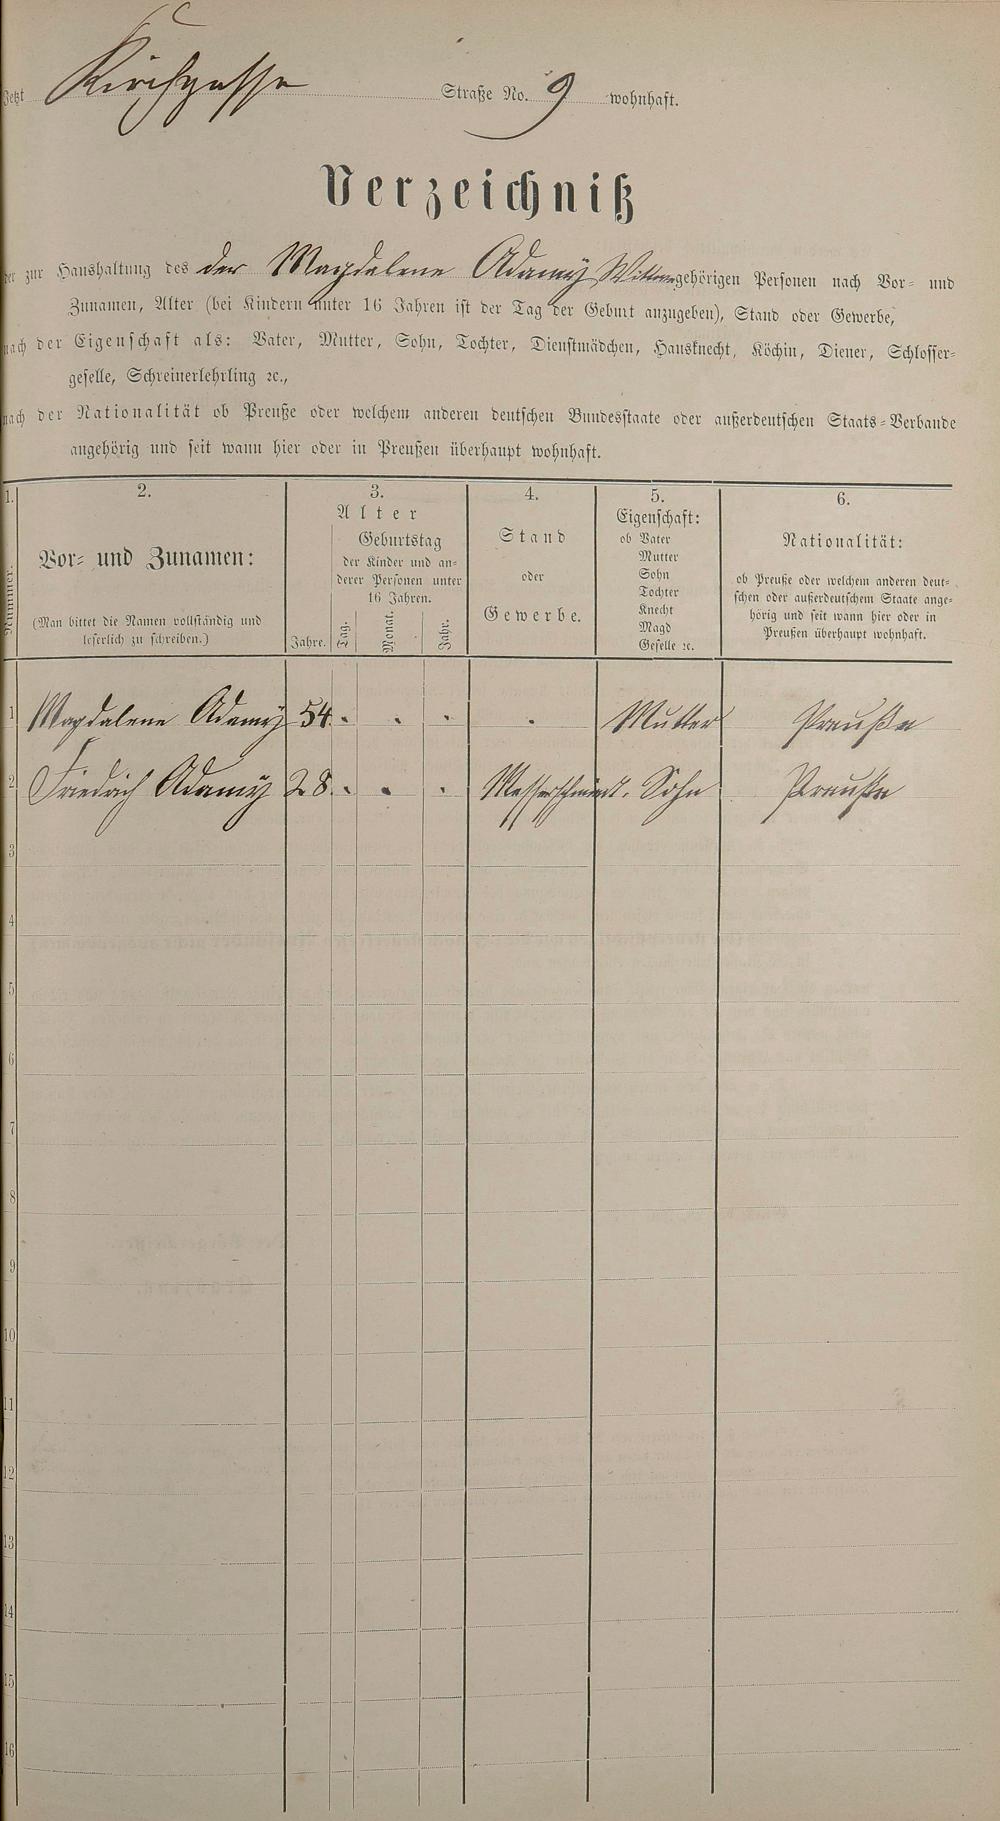 Jetzt Kirchgasse Straße No. 9 wohnhaft.
Verzeichniß
der zur Haushaltung des der Magdalene Adamy Wittwe gehörigen Personen nach Vor- und
Zunamen, Alter (bei Kindern unter 16 Jahren ist der Tag der Geburt anzugeben), Stand oder Gewerbe,
nach der Eigenschaft als: Vater, Mutter, Sohn, Tochter, Dienstmädchen, Hausknecht, Köchin, Diener, Schlosser-
geselle, Schreinerlehrling ꝛc.,
nach der Nationalität ob Preuße oder welchem anderen deutschen Bundesstaate oder außerdeutschen Staats-Verbande
angehörig und seit wann hier oder in Preußen überhaupt wohnhaft.
1.
Nummer.
2.
Vor- und Zunamen:
(Man bittet die Namen vollständig und
leserlich zu schreiben.)
3.
Alter
Jahre.
Geburtstag
der Kinder und an-
derer Personen unter
16 Jahren.
Tag. Monat. Jahr.
4.
Stand
oder
Gewerbe.
5.
Eigenschaft:
ob Vater
Mutter
Sohn
Tochter
Knecht
Magd
Geselle ꝛc.
6.
Nationalität:
ob Preuße oder welchem anderen deut-
schen oder außerdeutschem Staate ange-
hörig und seit wann hier oder in
Preußen überhaupt wohnhaft.
1 Magdalene Adamy 54 . . . . Mutter Preuße
2 Friedrich Adamy 28. . . . Messerschmidt. Sohn Preuße
3
4
5
6
7
8
9
10
11
12
13
14
15
16